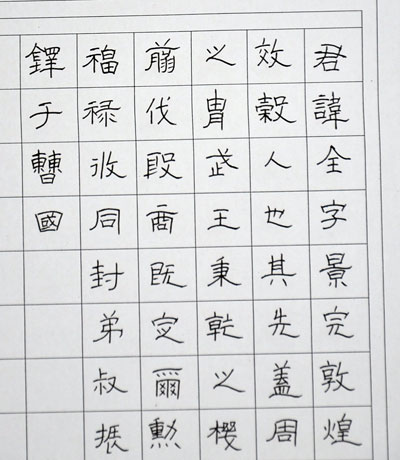 君諱全字景完敦煌
效穀人也其先蓋周
之胄武王秉乾之機
翦伐殷商既定爾勳
福禄攸同封弟叔振
鐸于曹國